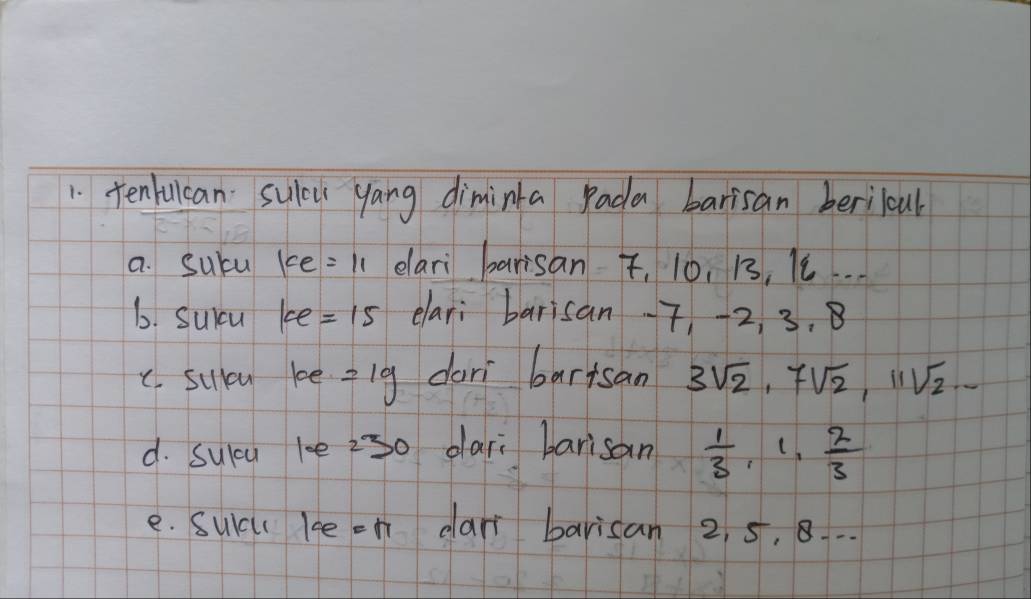 1. tentukan suku yang diminta pada barisan berikut
a. suku ke = 11 dari barisan 7, 10, 13, 16 ...
b. suku ke = 15 dari barisan -7, -2, 3, 8
c. suku ke = 19 dari barisan 3√2, 7√2, 11√2...
d. suku ke = 30 dari barisan 1/3, 1, 2/3
e. suku ke = n dari barisan 2, 5, 8...